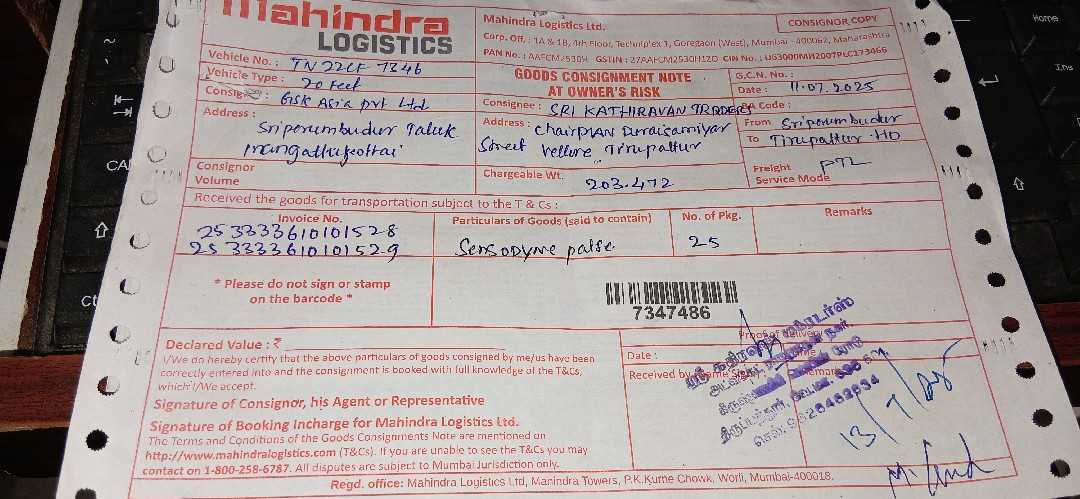 mahindra
LOGISTICS
Mahindra Logistics Ltd.
CONSIGNOR COPY
Corp. Off. : 1A & 1B, 4th Floor, Techniplex 1, Goregaon (West), Mumbai - 400062, Maharashtra
PAN No. : AAFCM2530H GSTIN : 27AAFCM2530H1ZO CIN No. : U63000MH2007PLC173466
Vehicle No. : TN 22CF 7346
Vehicle Type : 20 Feet
Consignor : GSK Asia pvt Ltd
Address : Sriperumbudur Taluk
GOODS CONSIGNMENT NOTE
AT OWNER'S RISK
Consignee : SRI KATHIRAVAN TRADERS
Address : Chairman Duraisamiyar
Street Vellore Tirupattur
G.C.N. No. :
Date : 11.07.2025
Code :
From Sriperumbudur
To Tirupattur -HD
Consignor
Volume
Chargeable Wt. 203.472
Freight PTL
Service Mode
Received the goods for transportation subject to the T & Cs :
Invoice No.
Particulars of Goods (said to contain)
No. of Pkg.
Remarks
253333610101528
253333610101529
Sensodyne paste
25
* Please do not sign or stamp
on the barcode *
7347486
Declared Value : ₹
I/We do hereby certify that the above particulars of goods consigned by me/us have been
correctly entered into and the consignment is booked with full knowledge of the T&Cs,
which I/We accept.
Signature of Consignor, his Agent or Representative
Signature of Booking Incharge for Mahindra Logistics Ltd.
The Terms and Conditions of the Goods Consignments Note are mentioned on
http://www.mahindralogistics.com (T&C). If you are unable to see the T&Cs you may
contact on 1-800-258-6787. All disputes are subject to Mumbai Jurisdiction only.
Proof of Delivery
Date :
Received by
13/7/25
Regd. office: Mahindra Logistics Ltd, Mahindra Towers, P.K.Kurne Chowk, Worli, Mumbai-400018.
Home
Ins